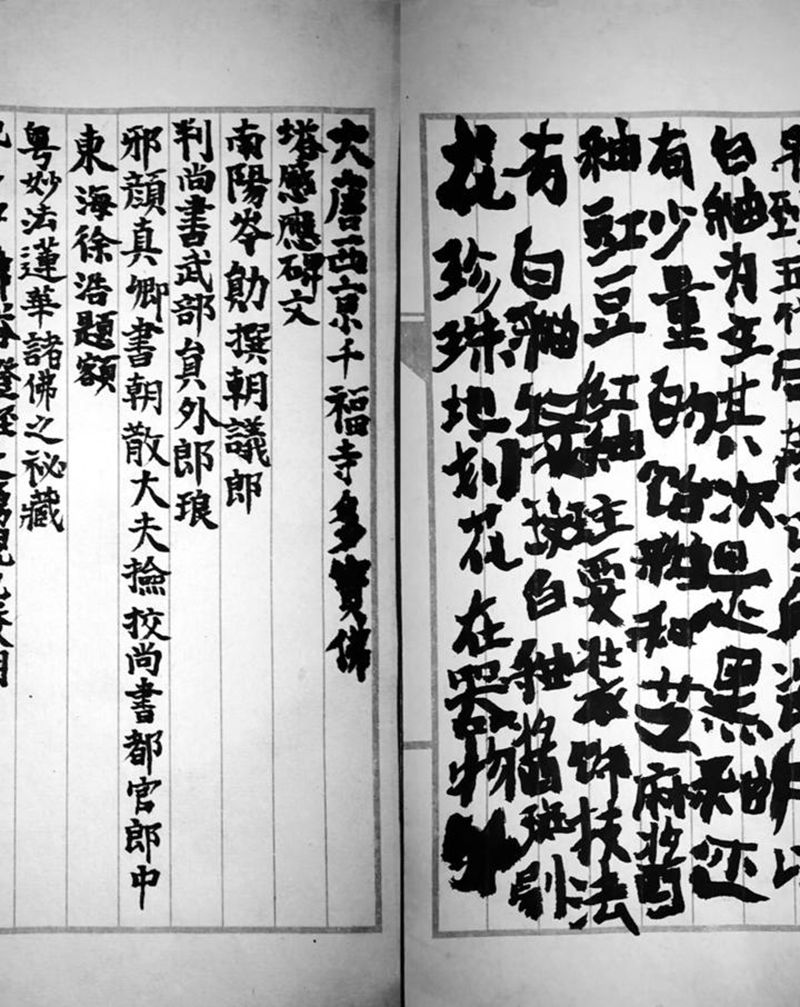 五代后
白釉为主其次是黑釉还
有少量的饴釉和芝麻酱
釉豇豆红釉主要装饰技法
有白釉绿斑白釉酱斑剔
花珍珠地刻花在器物
大唐西京千福寺多寶佛
塔感應碑文
南陽岑勛撰朝議郎
判尚書武部員外郎琅
邪顏真卿書朝散大夫撿挍尚書都官郎中
東海徐浩題額
粵妙法蓮華諸佛之祕藏